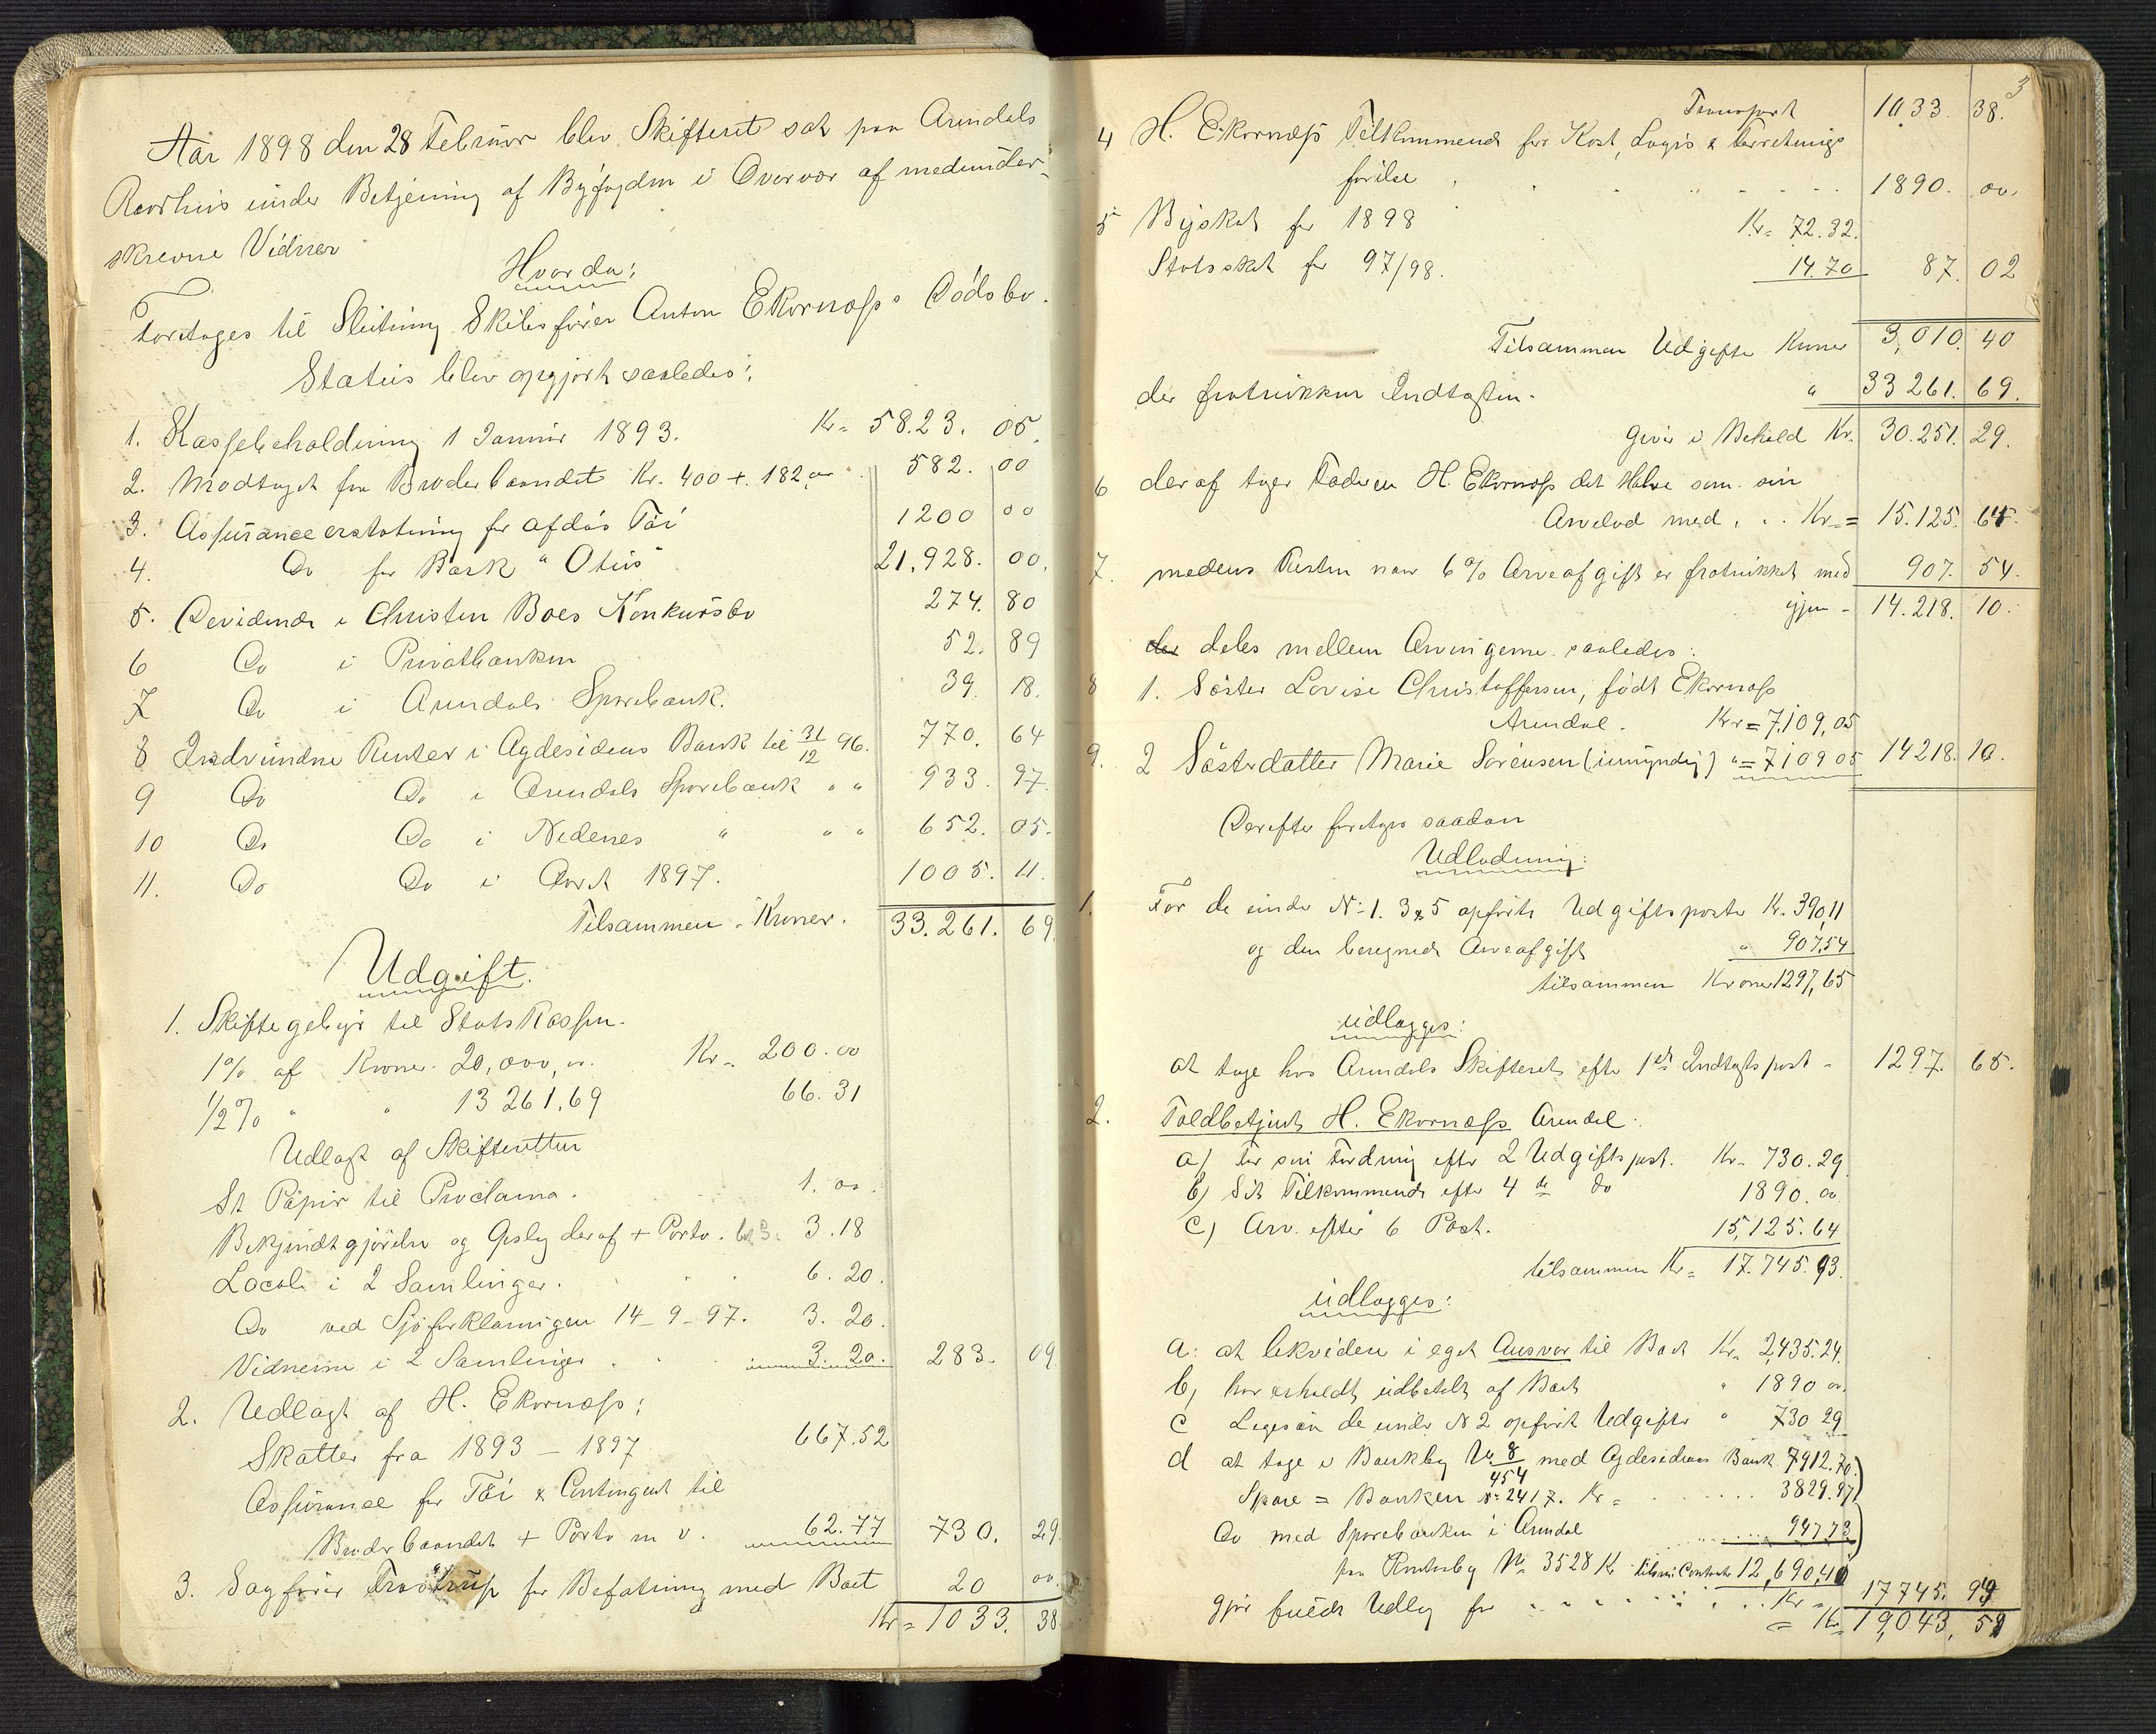 Aar 1898 den 28 Februar blev Skifteret sat paa Arendals
Raadhus under Betjening af Byfogden i Overvær af medunder-
skrevne Vidner
Hvorda:
Foretoges til Slutning Skibsfører Anton Ekornæss Dødsbo.
Status blev opgjort saaledes:
1. Kassebeholdning 1 Januar 1893. Kr= 5823. 05.
2. Modtaget fra Broderbaandet Kr. 400 + 182,00 582. 00
3. Assuranceerstatning for afdøs Tøi 1200 00
4. Do for Bark "Otius" 21.928. 00.
5. Devidende i Christen Boes Konkursbo 274. 80
6 Do i Privatbanken 52. 89
7 Do i Arendals Sparebank. 39. 18.
8 Indvundne Renter i Agdesidens Bank til 31/12 96. 770. 64
9 Do Do i Arendals Sparebank " " 933. 97
10 Do Do i Nedenes " " " 652. 05.
11. Do Do i Aaret 1897. 1005. 11.
Tilsammen Kroner. 33.261. 69
Udgift.
1. Skiftegebyr til Statskassen.
1% af Kroner 20,000,00. Kr= 200.00
1/2% " " 13261.69 66.31
Udlagt af Skifteretten
St Papir til Proclama. 1.00.
Bekjendtgjørelse og Gjeslg deraf + Porto. 3.18
Locale i 2 Samlinger. 6.20.
Do ved Sjøforklaringen 14-9-97. 3.20.
Vidnerne i 2 Samlinger 3.20. 283. 09.
2. Udlagt af H. Ekornæss:
Skatter fra 1893 - 1897 667.52
Assurance for Tøi & Contingent til
Broderbaandet + Porto m v. 62.77 730. 29.
3. Sagfører for Befatning med Boet 20 00.
Kr= 1033. 38
3
Transport 1033. 38.
4 H. Ekornæss Tilkommende for Kost, Logis & Forretnings
førelse 1890. 00.
5 Byskat for 1898 Kr= 72.32.
Statsskat for 97/98. 14.70 87. 02
Tilsammen Udgifter Kroner 3,010. 40
der fratrukken Indtægten. " 33261. 69.
giver i Behold Kr. 30.251. 29.
6 deraf tager Faderen H. Ekornæss det Halve som sin
Arvelod med . . . Kr= 15.125. 64
7. medens Resten naar 6% Arveafgift er fratrukket med 907. 54.
igjen - 14.218. 10.
der deles mellem Arvingerne saaledes:
8 1. Søster Lovise Christoffersen, født Ekornæss
Arendal. Kr= 7,109,05
9. 2 Søsterdatter Marie Sørensen (umyndig) "= 7109 05 14218. 10.
Derefter foretoges saadan
Udlodning:
1. For de under No 1. 3 & 5 opførte Udgiftsposter Kr. 390,11
og den beregnede Arveafgift " 907,54
tilsammen Kroner 1297,65
udlægges:
at tage hos Arendals Skifteret efter 1ste Indtægtspost - 1297. 65.
2. Toldbetjent H. Ekornæss Arendal:
a) For sin Fordring efter 2 Udgiftspost. Kr= 730.29
b) Sit Tilkommende efter 4de do 1890.00
c) Arv. efter 6 Post. 15,125.64
tilsammen Kr= 17.745.93.
udlægges:
a: at likvidere i eget Ansvar til Boet Kr= 2,435.24.
b, har erholdt udbetalt af Boet " 1890 00.
c Ligesaa de under No 2 opført Udgifter " 730 29
d at tage i Bankbog No 8/454 med Agdesidens Bank 7912.70.
Spare = Banken No 2417. Kr= 3829.97
Do med Sparebanken i Arendal 947 73
paa Rentebog No 3528 Kr tilsm: Contante 12,690,40
gjør fuldt Udlæg for Kr= 17745. 93
= Kr= 19,043, 58